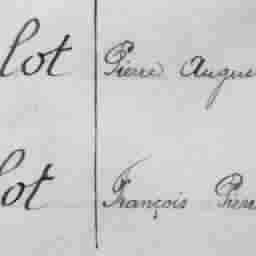 lot Pierre Augu
lot François Pier